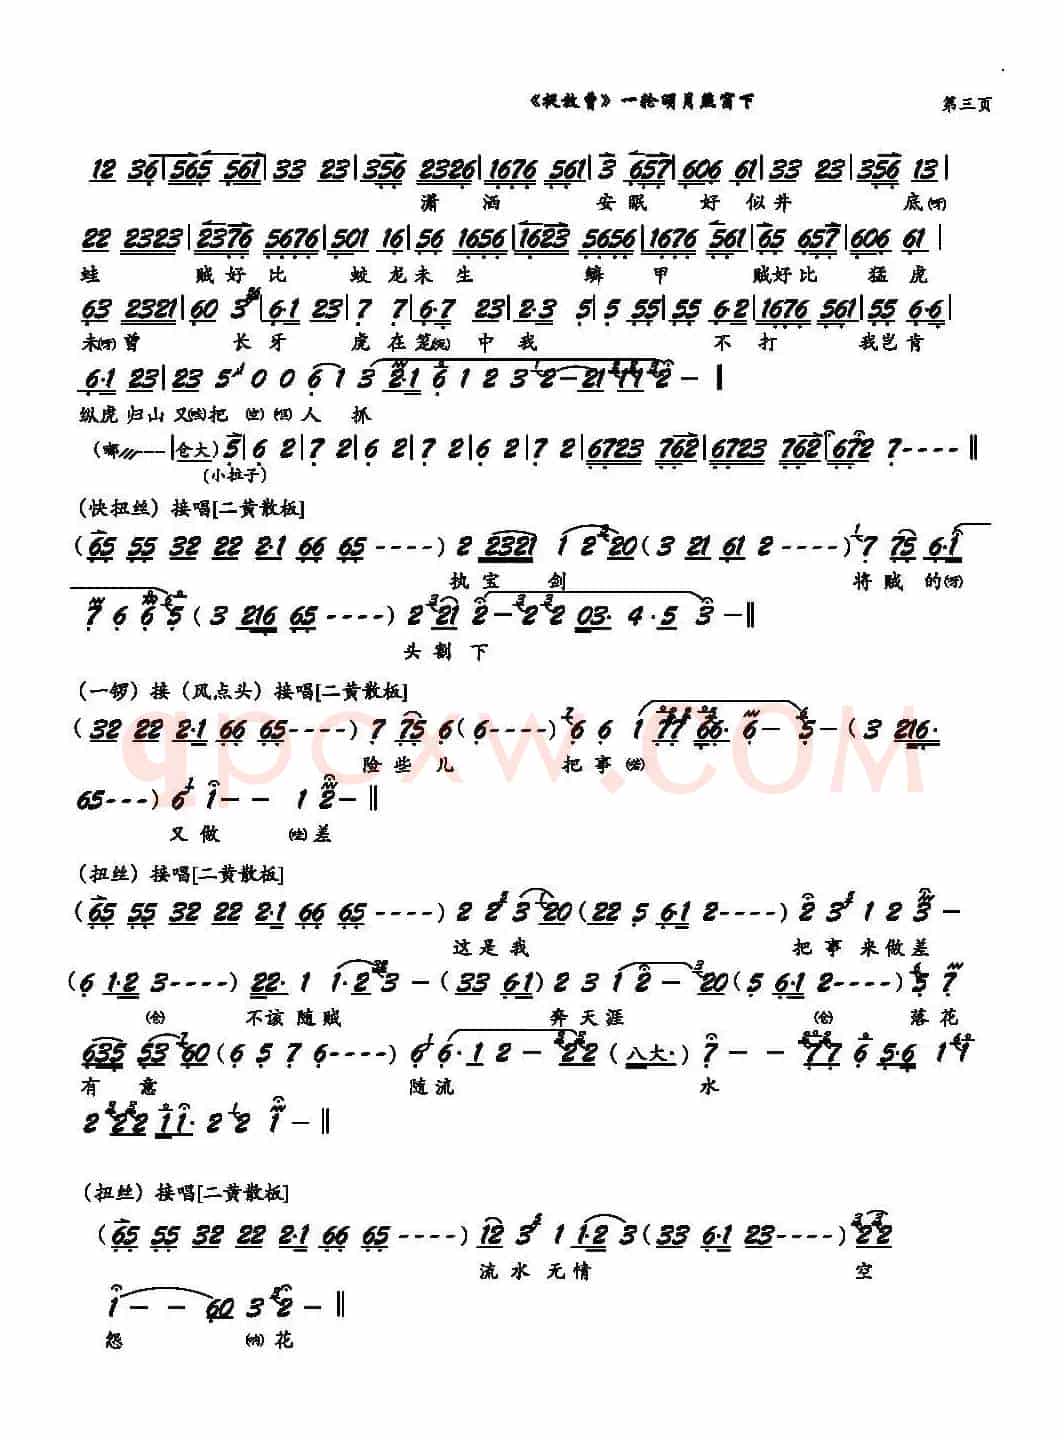 《捉放曹》一轮明月照窗下 第三页
12 36|565 561|33 23|356 2326|1676 561|3 657|606 61|33 23|356 13|
潇 洒 安 眠 好 似 井 底(呀)
22 2323|2376 5676|501 16|56 1656|1623 5656|1676 561|65 657|606 61|
蛙 贼 好 比 蛟 龙 未 生 鳞 甲 贼 好 比 猛 虎
63 2321|60 3 6·1 23|7 7|6·7 23|2·3 5|5 55|55 6·2|1676 561|55 6·6|
未(呀)曾 长 牙 虎 在 笼(呃) 中 我 不 打 我 岂 肯
6·1 23|23 5 0 0 6 1 3 2·1 6 1 2 3 2-21 11 2-‖
纵 虎 归 山 又 把 人 抓
(嘟----|仓大) 5|6 2|7 2|6 2|7 2|6 2|7 2|6723 762|6723 762|672 7----‖
(小拉子)
(快扭丝)接唱[二黄散板]
(65 55 32 22 2·1 66 65----)2 2321 1 2 20(3 21 61 2----)7 75 6·1
执 宝 剑 将 贼 的(呀)
7 6 6 5(3 216 65----)2 21 2-2 2 03· 4·5 3-‖
头 割 下
(一锣)接(风点头)接唱[二黄散板]
(32 22 2·1 66 65----)7 75 6(6----)6 6 1 77 66· 6-5-(3 216·
险 些 儿 把 事
65---)6 1-- 1 2-‖
又 做 差
(扭丝)接唱[二黄散板]
(65 55 32 22 2·1 66 65----)2 2 3 20(22 5 6·1 2----)2 3 1 2 3-
这 是 我 把 事 来 做 差
(6 1·2 3----)22· 1 1·2 3-(33 61)2 3 1 2-20(5 6·1 2----)5 7
(仓) 不 该 随 贼 奔 天 涯 (仓) 落 花
635 53 60(6 5 7 6----)6 6·1 2-22(八大·)7--77 6 5·6 1 1
有 意 随 流 水
2 22 11· 2 2 1-‖
(扭丝)接唱[二黄散板]
(65 55 32 22 2·1 66 65----)12 3 1 1·2 3(33 6·1 23----)22
流 水 无 情 空
1-- 60 3 2-‖
怨 花
qpcxw.COM